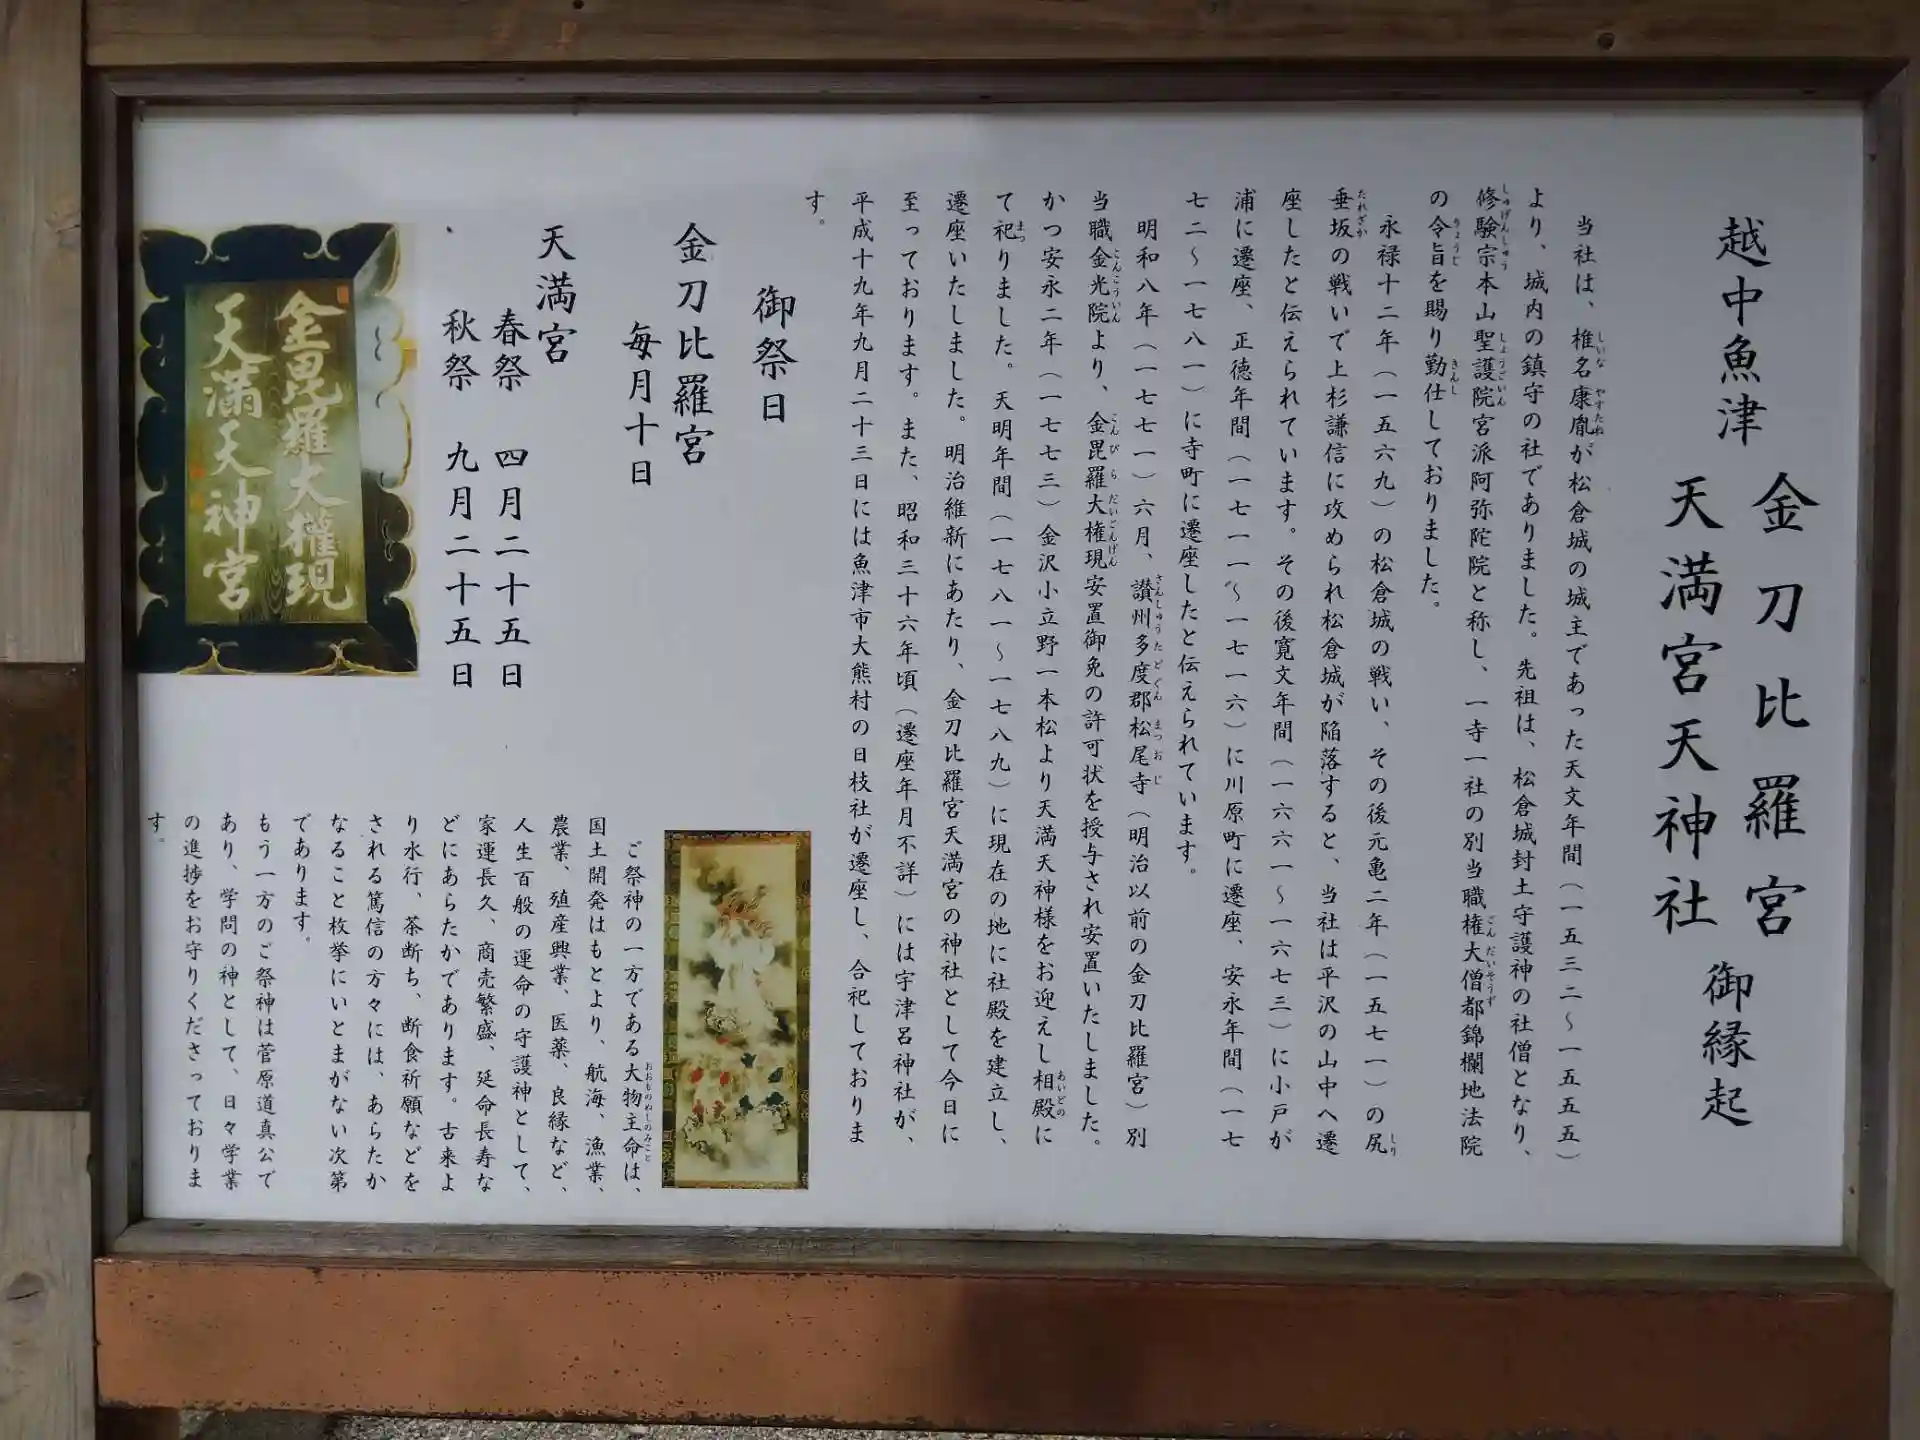 越中魚津
金刀比羅宮
天満宮天神社
御縁起
当社は、椎名康胤が松倉城の城主であった天文年間（一五三二〜一五五五）
より、城内の鎮守の社でありました。先祖は、松倉城封土守護神の社僧となり、
修験宗本山聖護院宮派阿弥陀院と称し、一寺一社の別当職権大僧都錦欄地法院
の令旨を賜り勤仕しておりました。
永禄十二年（一五六九）の松倉城の戦い、その後元亀二年（一五七一）の尻
垂坂の戦いで上杉謙信に攻められ松倉城が陥落すると、当社は平沢の山中へ遷
座したと伝えられています。その後寛文年間（一六六一〜一六七三）に小戸が
浦に遷座、正徳年間（一七一一〜一七一六）に川原町に遷座、安永年間（一七
七二〜一七八一）に寺町に遷座したと伝えられています。
明和八年（一七七一）六月、讃州多度郡松尾寺（明治以前の金刀比羅宮）別
当職金光院より、金毘羅大権現安置御免の許可状を授与され安置いたしました。
かつ安永二年（一七七三）金沢小立野一本松より天満天神様をお迎えし相殿に
て祀りました。天明年間（一七八一〜一七八九）に現在の地に社殿を建立し、
遷座いたしました。明治維新にあたり、金刀比羅宮天満宮の神社として今日に
至っております。また、昭和三十六年頃（遷座年月不詳）には宇津呂神社が、
平成十九年九月二十三日には魚津市大熊村の日枝社が遷座し、合祀しておりま
す。
御祭日
金刀比羅宮
毎月十日
天満宮
春祭　四月二十五日
秋祭　九月二十五日
金毘羅大權現
天満天神宮
ご祭神の一方である大物主命は、
国土開発はもとより、航海、漁業、
農業、殖産興業、医薬、良縁など、
人生百般の運命の守護神として、
家運長久、商売繁盛、延命長寿な
どにあらたかであります。古来よ
り水行、茶断ち、断食祈願などを
される篤信の方々には、あらたか
なること枚挙にいとまがない次第
であります。
もう一方のご祭神は菅原道真公で
あり、学問の神として、日々学業
の進捗をお守りくださっておりま
す。